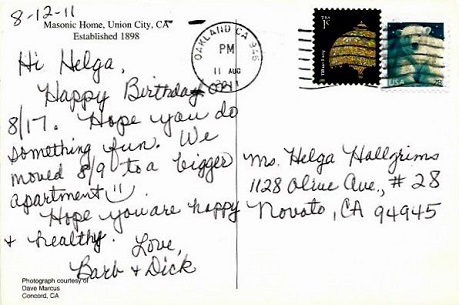 8-12-11
Masonic Home, Union City, CA
Established 1898
Hi Helga,
Happy Birthday on
8/17. Hope you do
something fun. We
moved 8/9 to a bigger
apartment
Hope you are happy
& healthy.
Love,
Barb & Dick
Photograph courtesy of
Dave Marcus
Concord, CA
OAKLAND CA 946
PM
11 AUG
USA
1¢
USA
Ms. Helga Hallgrims
1128 Olive Ave., # 28
Novato, CA 94945